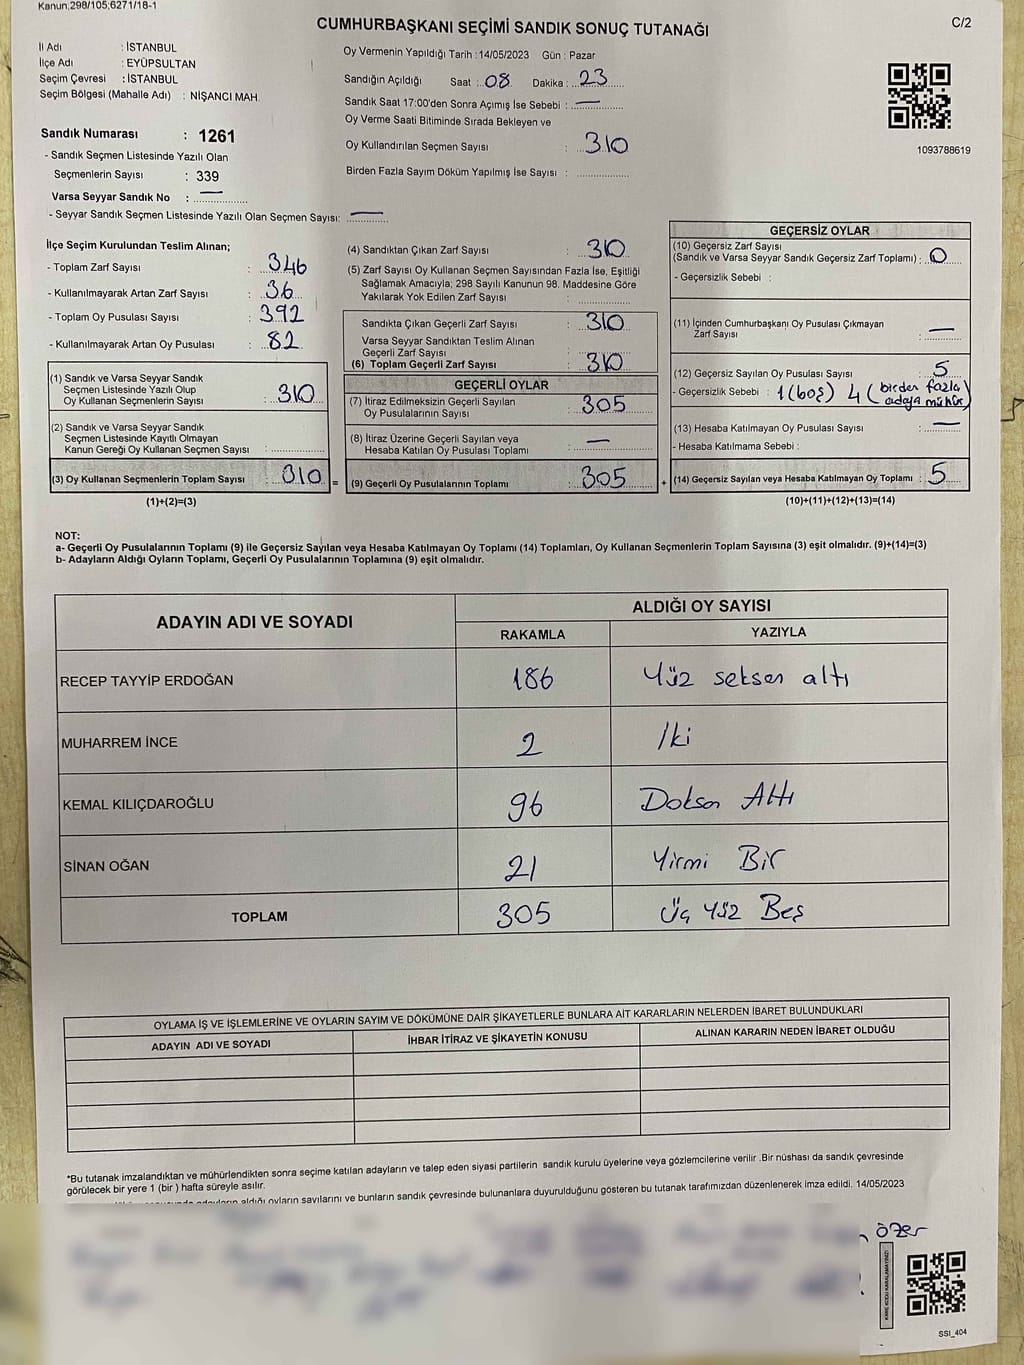 Kanun;298/105;6271/18-1
CUMHURBAŞKANI SEÇİMİ SANDIK SONUÇ TUTANAĞI
C/2
İl Adı : İSTANBUL
İlçe Adı : EYÜPSULTAN
Seçim Çevresi : İSTANBUL
Seçim Bölgesi (Mahalle Adı) : NİŞANCI MAH.
Oy Vermenin Yapıldığı Tarih : 14/05/2023 Gün : Pazar
Sandığın Açıldığı Saat : 08 Dakika : 23
Sandık Saat 17:00'den Sonra Açımış İse Sebebi : —
Oy Verme Saati Bitiminde Sırada Bekleyen ve
Oy Kullandırılan Seçmen Sayısı : 310
Birden Fazla Sayım Döküm Yapılmış İse Sayısı :
1093788619
Sandık Numarası : 1261
- Sandık Seçmen Listesinde Yazılı Olan
Seçmenlerin Sayısı : 339
Varsa Seyyar Sandık No : —
- Seyyar Sandık Seçmen Listesinde Yazılı Olan Seçmen Sayısı: —
İlçe Seçim Kurulundan Teslim Alınan;
- Toplam Zarf Sayısı : 346
- Kullanılmayarak Artan Zarf Sayısı : 36
- Toplam Oy Pusulası Sayısı : 392
- Kullanılmayarak Artan Oy Pusulası : 82
(1) Sandık ve Varsa Seyyar Sandık
Seçmen Listesinde Yazılı Olup
Oy Kullanan Seçmenlerin Sayısı : 310
(2) Sandık ve Varsa Seyyar Sandık
Seçmen Listesinde Kayıtlı Olmayan
Kanun Gereği Oy Kullanan Seçmen Sayısı :
(3) Oy Kullanan Seçmenlerin Toplam Sayısı : 310 =
(1)+(2)=(3)
(4) Sandıktan Çıkan Zarf Sayısı : 310
(5) Zarf Sayısı Oy Kullanan Seçmen Sayısından Fazla İse, Eşitliği
Sağlamak Amacıyla; 298 Sayılı Kanunun 98. Maddesine Göre
Yakılarak Yok Edilen Zarf Sayısı :
Sandıkta Çıkan Geçerli Zarf Sayısı : 310
Varsa Seyyar Sandıktan Teslim Alınan
Geçerli Zarf Sayısı :
(6) Toplam Geçerli Zarf Sayısı : 310
GEÇERLİ OYLAR
(7) İtiraz Edilmeksizin Geçerli Sayılan
Oy Pusulalarının Sayısı : 305
(8) İtiraz Üzerine Geçerli Sayılan veya
Hesaba Katılan Oy Pusulası Toplamı : —
(9) Geçerli Oy Pusulalarının Toplamı : 305 +
GEÇERSİZ OYLAR
(10) Geçersiz Zarf Sayısı
(Sandık ve Varsa Seyyar Sandık Geçersiz Zarf Toplamı) : 0
- Geçersizlik Sebebi :
(11) İçinden Cumhurbaşkanı Oy Pusulası Çıkmayan
Zarf Sayısı : —
(12) Geçersiz Sayılan Oy Pusulası Sayısı : 5
- Geçersizlik Sebebi : 1 (boş) 4 (birden fazla
adaya mühür)
(13) Hesaba Katılmayan Oy Pusulası Sayısı : —
- Hesaba Katılmama Sebebi :
(14) Geçersiz Sayılan veya Hesaba Katılmayan Oy Toplamı : 5
(10)+(11)+(12)+(13)=(14)
NOT:
a- Geçerli Oy Pusulalarının Toplamı (9) ile Geçersiz Sayılan veya Hesaba Katılmayan Oy Toplamı (14) Toplamları, Oy Kullanan Seçmenlerin Toplam Sayısına (3) eşit olmalıdır. (9)+(14)=(3)
b- Adayların Aldığı Oyların Toplamı, Geçerli Oy Pusulalarının Toplamına (9) eşit olmalıdır.
ADAYIN ADI VE SOYADI
ALDIĞI OY SAYISI
RAKAMLA YAZIYLA
RECEP TAYYİP ERDOĞAN 186 Yüz seksen altı
MUHARREM İNCE 2 İki
KEMAL KILIÇDAROĞLU 96 Doksan Altı
SİNAN OĞAN 21 Yirmi Bir
TOPLAM 305 Üç Yüz Beş
OYLAMA İŞ VE İŞLEMLERİNE VE OYLARIN SAYIM VE DÖKÜMÜNE DAİR ŞİKAYETLERLE BUNLARA AİT KARARLARIN NELERDEN İBARET BULUNDUKLARI
ADAYIN ADI VE SOYADI İHBAR İTİRAZ VE ŞİKAYETİN KONUSU ALINAN KARARIN NEDEN İBARET OLDUĞU
*Bu tutanak imzalandıktan ve mühürlendikten sonra seçime katılan adayların ve talep eden siyasi partilerin sandık kurulu üyelerine veya gözlemcilerine verilir .Bir nüshası da sandık çevresinde
görülecek bir yere 1 (bir ) hafta süreyle asılır.
aldığı oyların sayılarını ve bunların sandık çevresinde bulunanlara duyurulduğunu gösteren bu tutanak tarafımızdan düzenlenerek imza edildi. 14/05/2023
özer
KARE KODU KARALAMAYINIZ!
SSI_404